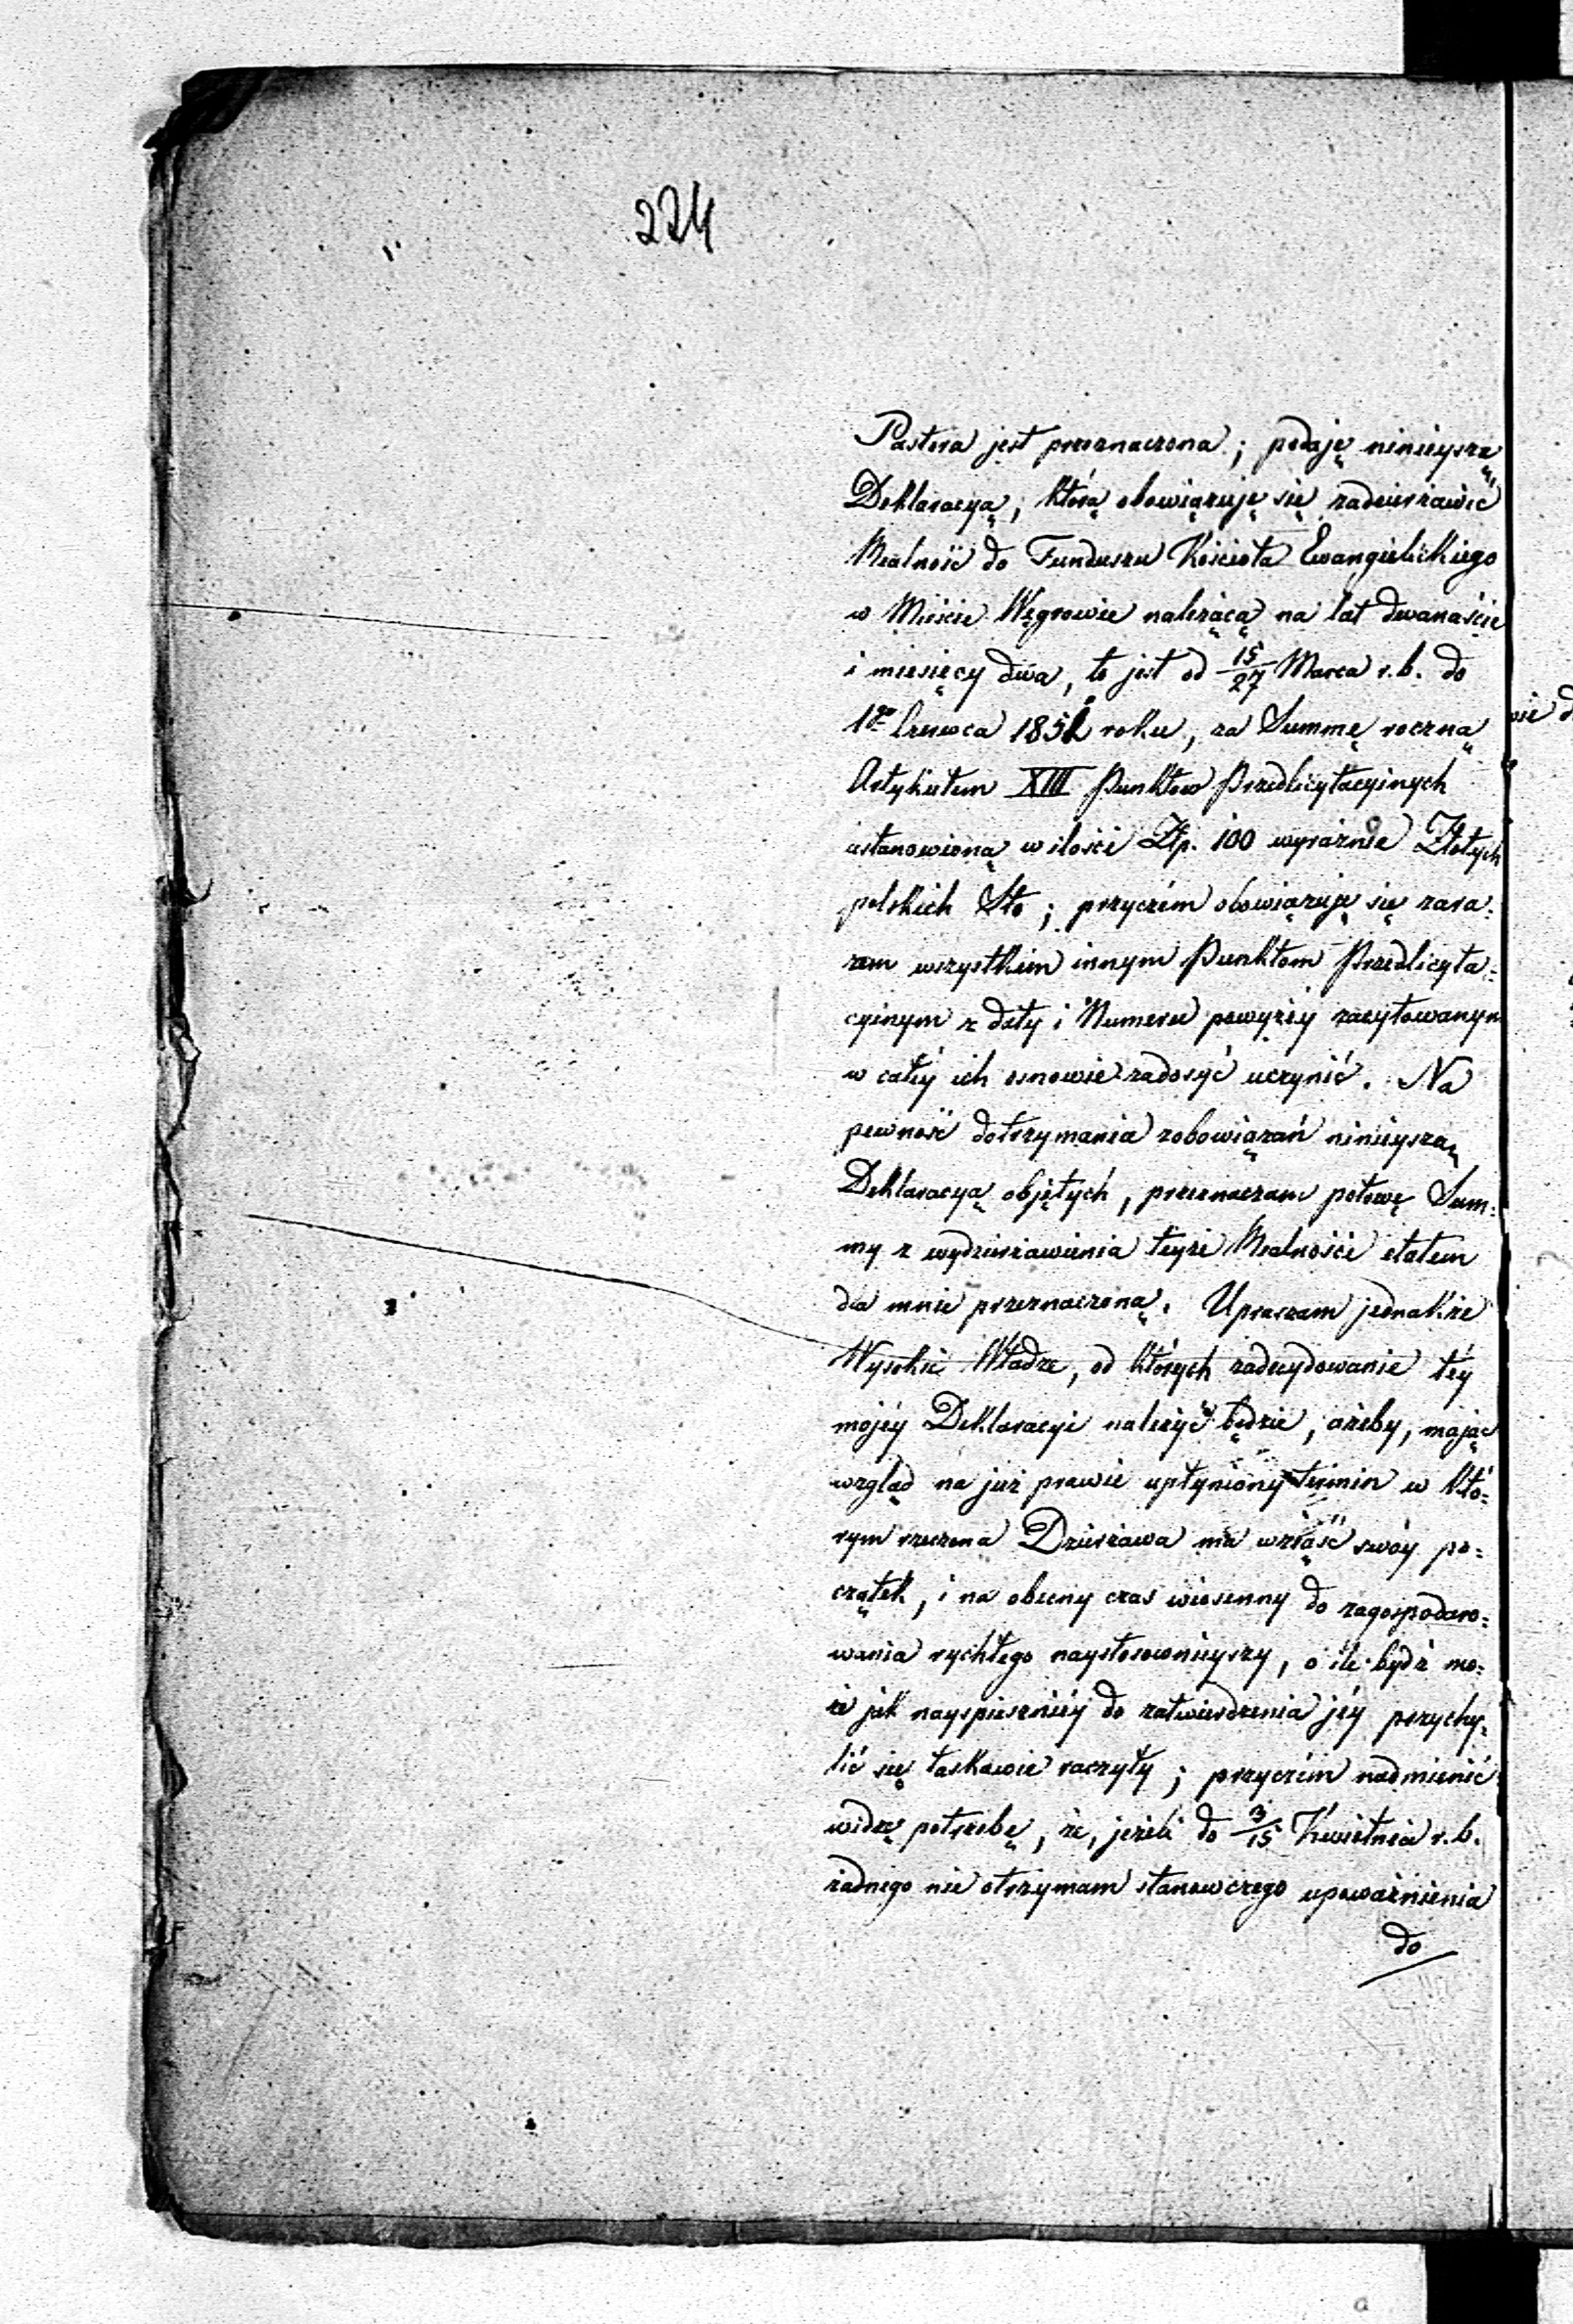 224
Pastora jest przeznaczona; podaję ninieyszą
Deklaracyą, którą obowiązuję się zadzierżawić
Realność do Funduszu Kościoła Ewangielickiego
w Mieście Węgrowie należącą na lat dwanaście
i miesięcy dwa, to jest od 15/27 Marca r. b. do
1go Czerwca 185 roku, za Summę roczną
Artykułem XIII Punktow Przedlicytacyinych
ustanowioną w ilości Złp. 100 wyraźnie Złotych
polskich Sto; przyczém obowiązuję się zara=
zem wszystkim innym Punktom Przedlicyta=
cyinym z daty i Numeru powyżéy zacytowanym
w całéy ich osnowie zadosyć uczynić. Na
pewność dotrzymania zobowiązań ninieyszą
Deklaracyą objętych, przeznaczam połowę Sum=
my z wydzierżawienia teyże Realności etatem
dla mnie przeznaczoną. Upraszam jednakże
Wysokie Władze, od których zadecydowanie téy
mojéy Deklaracyi należyć będzie, ażeby, mając
wzgląd na już prawie upłyniony termin w któ=
rym rzeczona Dzierżawa ma wziąść swóy po=
czątek, i na obecny czas wiosenny do zagospodaro=
wania rychłego naystosownieyszy, o ile bydź mo=
że jak nayspieszniéy do zatwierdzenia jéy przychy=
lić się łaskawie raczyły; przyczém nadmienić
widzę potrzebę, że, jeżeli do 3/15 Kwietnia r. b.
żadnego nie otrzymam stanowczego upoważnienia
do